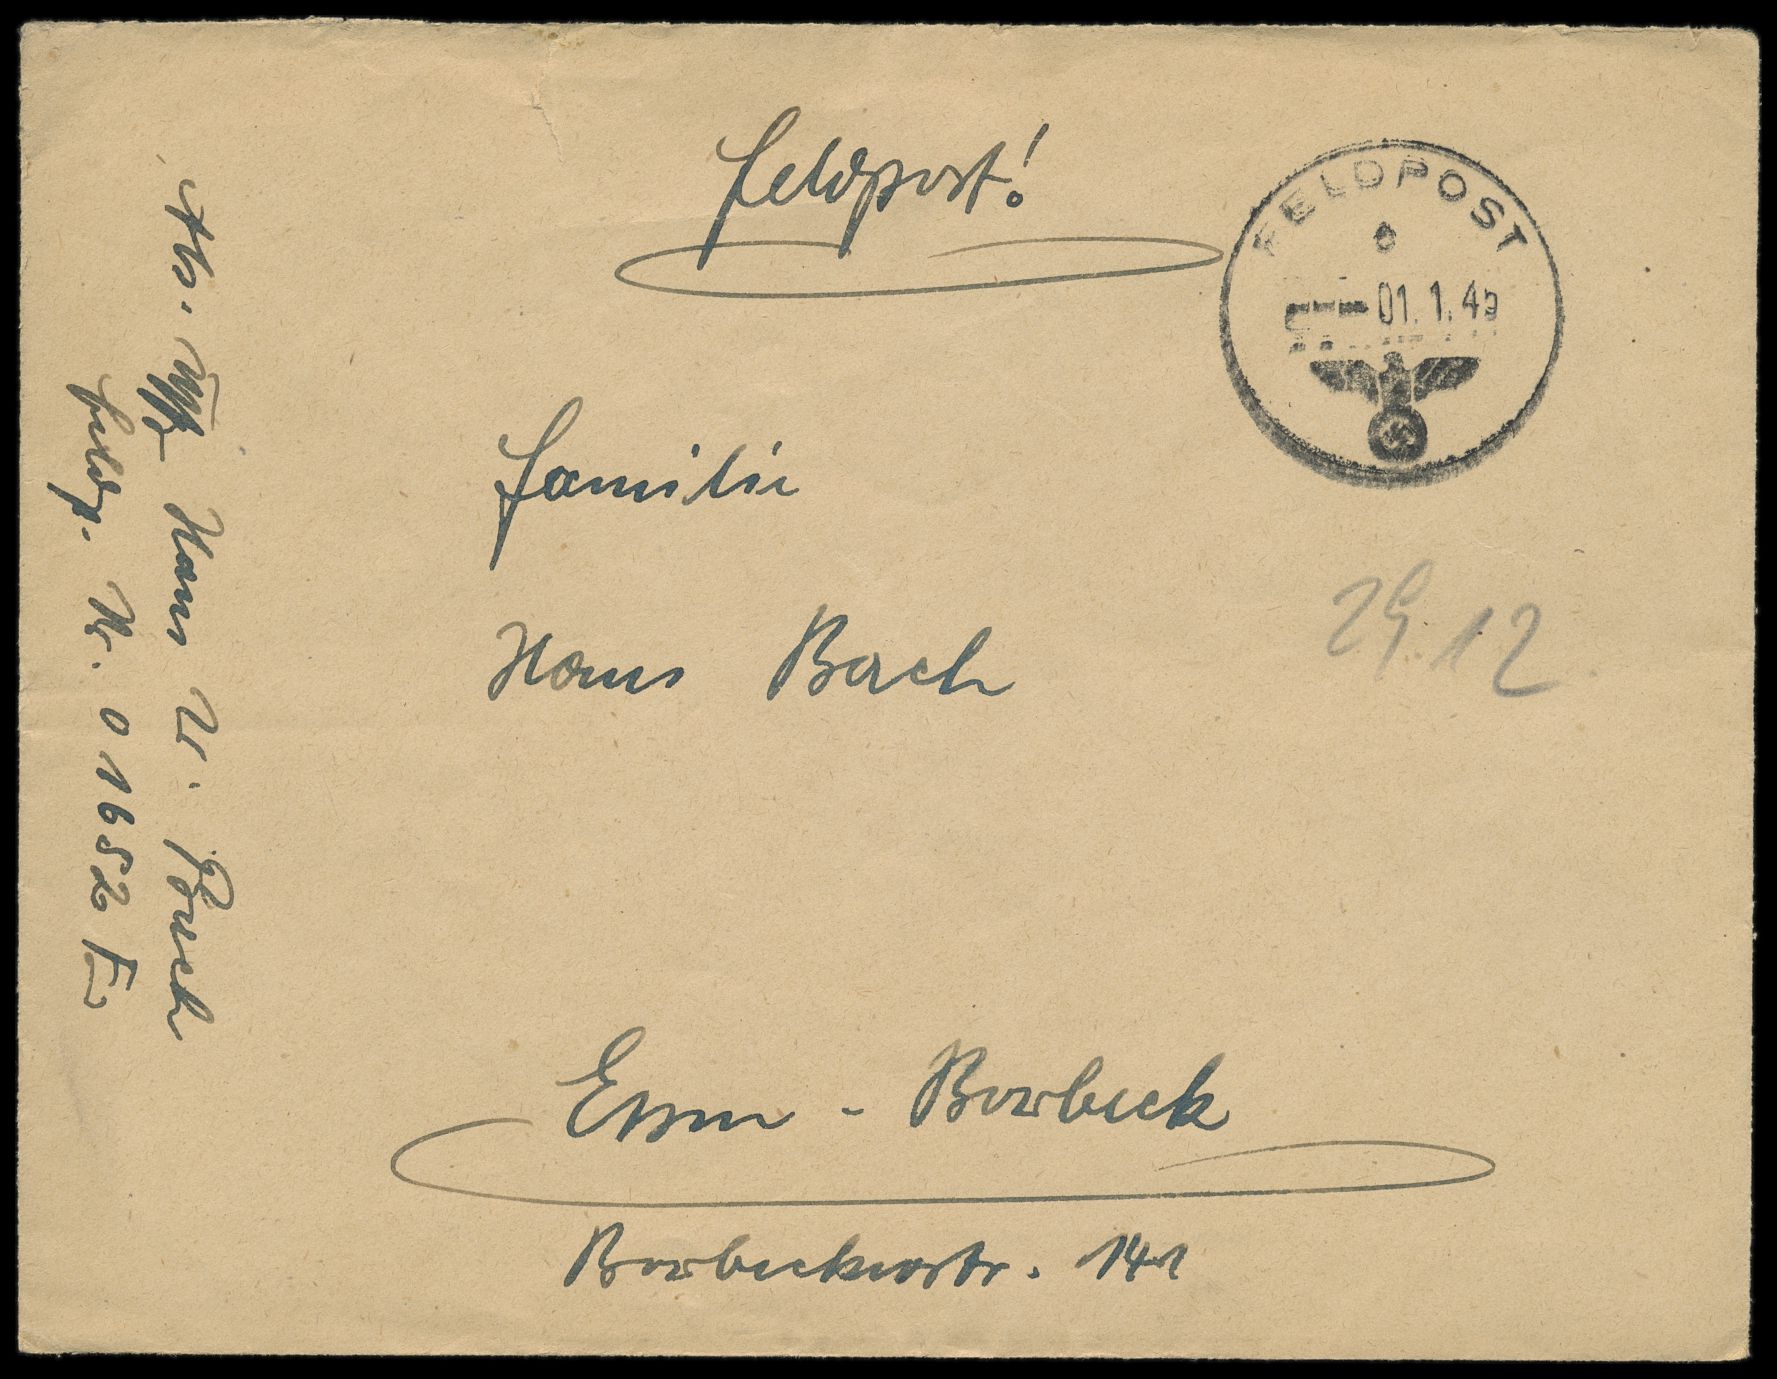 Feldpost!
FELDPOST
01.1.45
Familie
Hans Bach
29.12.
Essen - Borbeck
Borbeckerstr. 141
Abs. Uffz. Hans W. Busch
Feldp. Nr. 01652 E